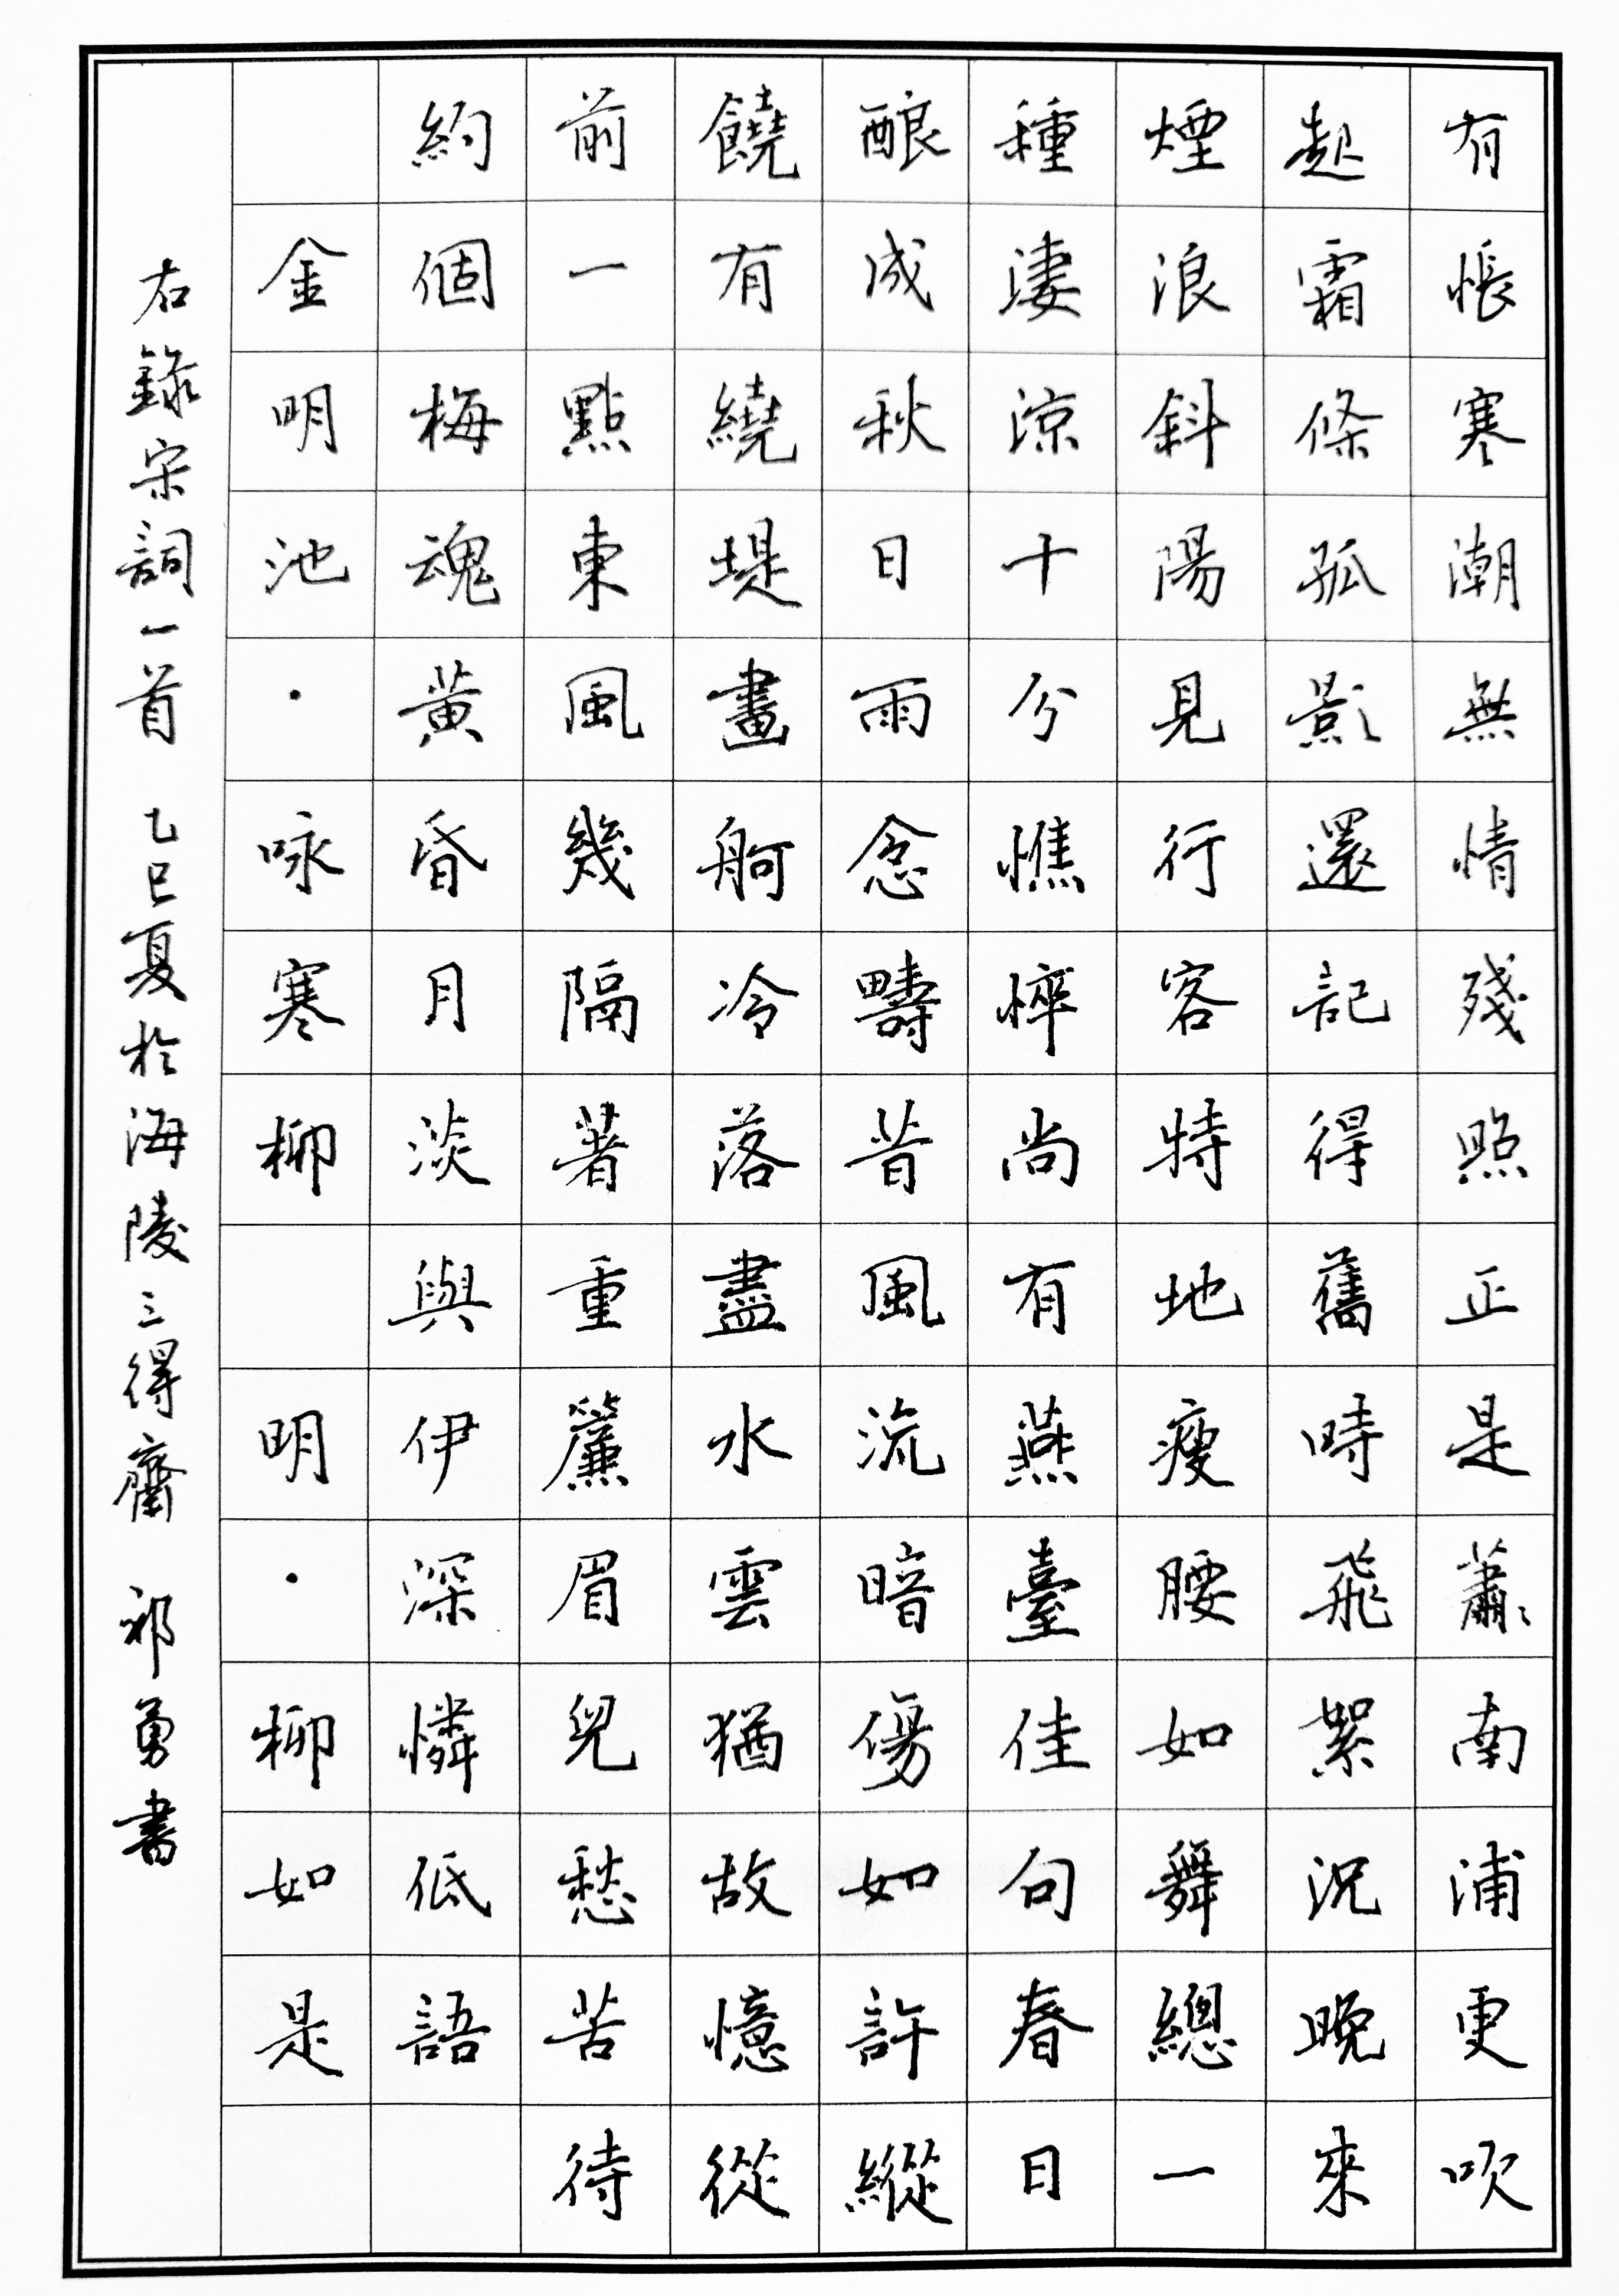 有悵寒潮無情殘照正是蕭〻南浦更吹
起霜條孤影還記得舊時飛絮況晚來
煙浪斜陽見行客特地瘦腰如舞總一
種淒涼十分憔悴尚有燕臺佳句春日
釀成秋日雨念疇昔風流暗傷如許縱
饒有繞堤畫舸冷落盡水雲猶故憶從
前一點東風幾隔著重簾眉兒愁苦待
約個梅魂黃昏月淡與伊深憐低語
金明池·咏寒柳 明·柳如是
右錄宋詞一首 乙巳夏於海陵三得齋 祁勇書